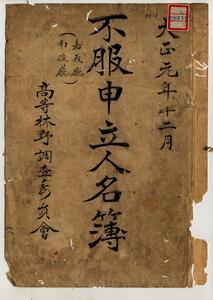 大正元年十二月
不服申立人名簿
(嘉義廳
南投廳)
高等林野調查委員會